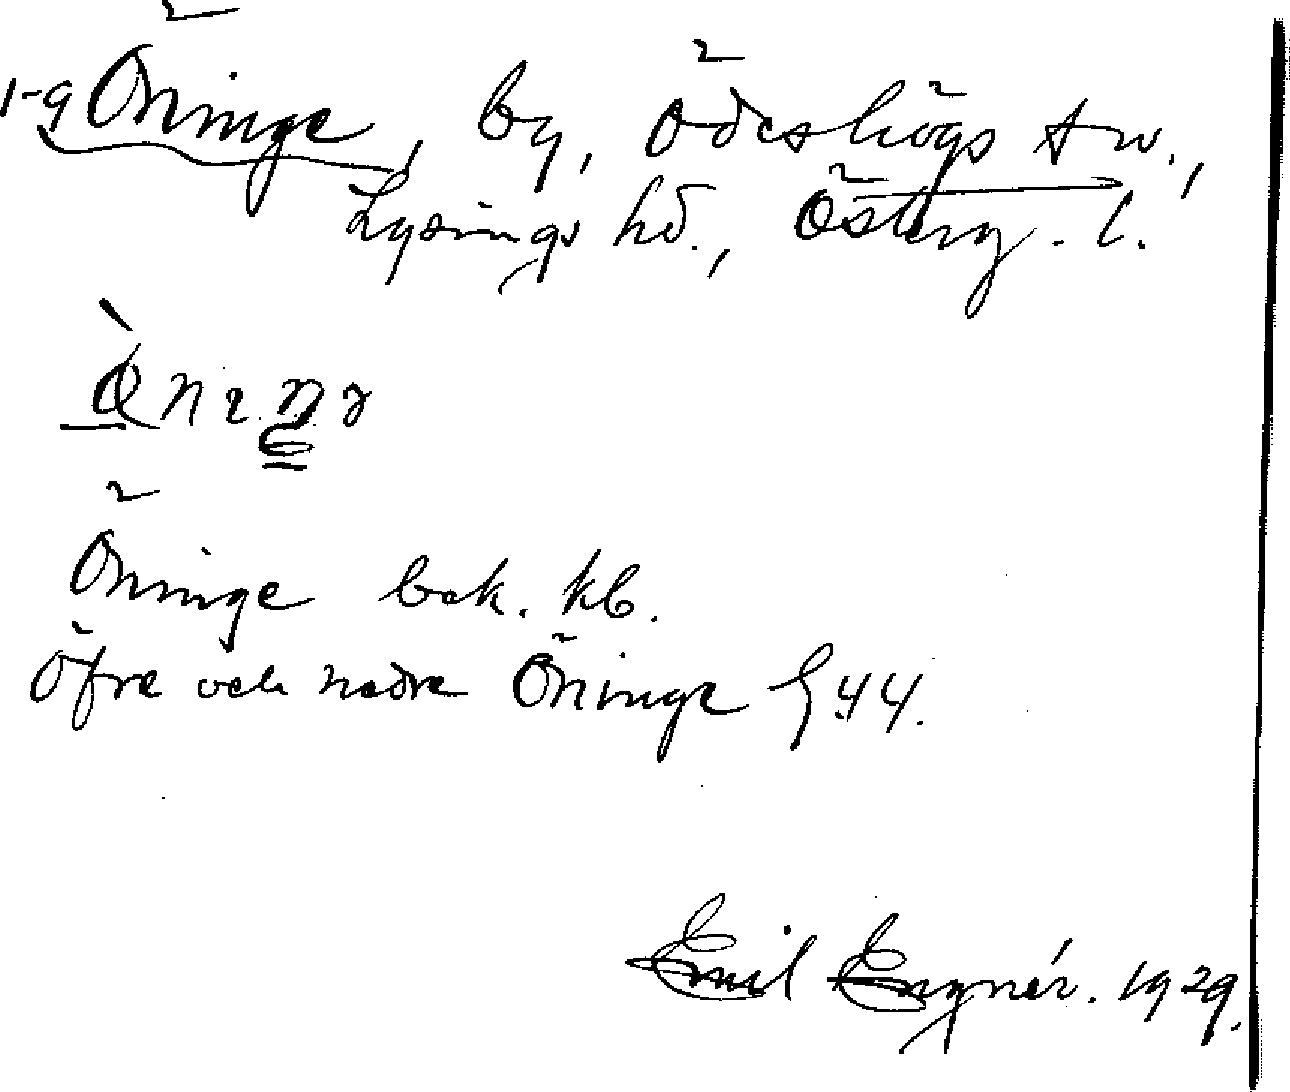 1-9 Öninge, by, Ödeshögs sn.,
Lysings hd., Österg. l.
Öninge bok. kb.
Öfre och nedre Öninge § 44.
Emil Engnér. 1929.